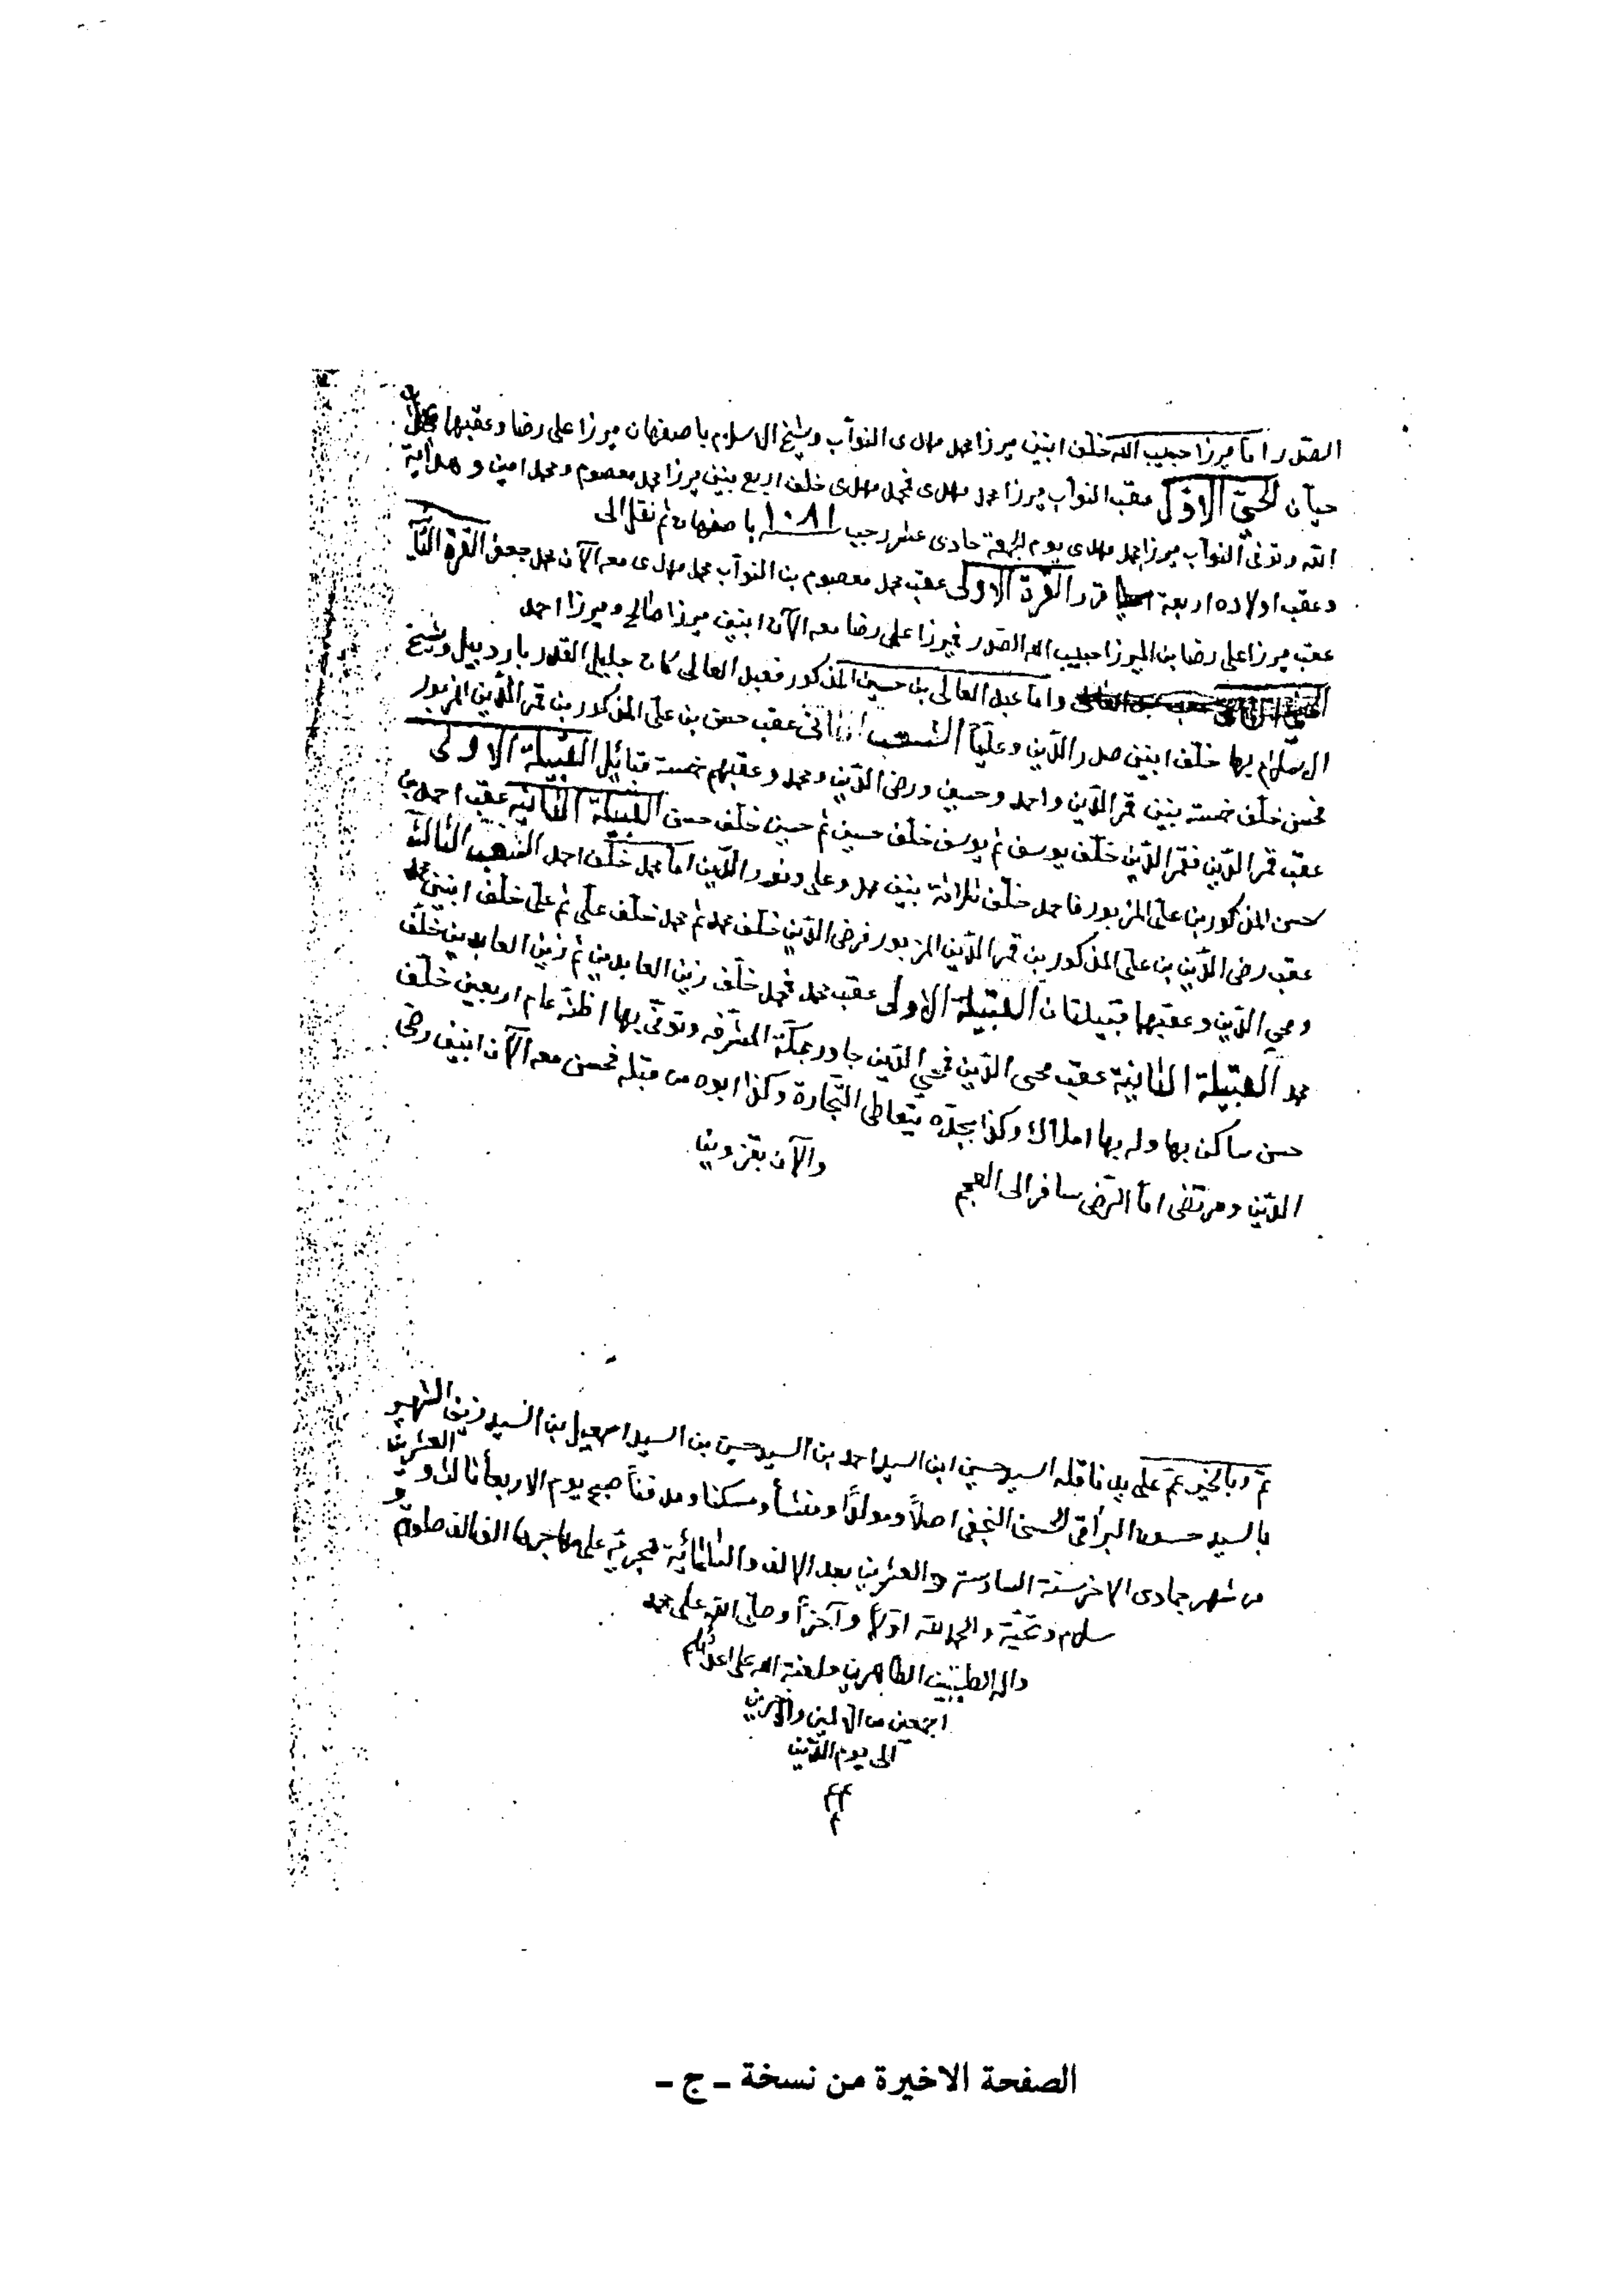 الصدر اما ميرزا حبيب الله خلف ابنين ميرزا محمد مهدى النوآب وشيخ الاسلام باصفهان ميرزا على رضا وعقبهما
حيآن الحيّ الاوّل عقب النوآب ميرزا محمد مهدى فمحمد مهدى خلف اربع بنين ميرزا محمد معصوم ومحمد امين وهداية
الله وتوفى النوآب ميرزا محمد مهدى يوم الجمعة حادى عشر رجب سنة ١٠٨١ باصفهان ثم نقل الى
وعقب اولاده اربعة قرر القرة الاولى عقب محمد معصوم بن النوآب محمد مهدى معه الآن محمد جعفر القرة
عقب ميرزا على رضا بن الميرزا حبيب الله الصدر فميرزا على رضا معه الآن ابنين ميرزا صالح وميرزا احمد
واما عبد العالى بن حسين المذكور فعبد العالى كان جليل القدر باردبيل وشيخ
الاسلام بها خلف ابنين صدر الدّين وعلياً الشعب الثانى عقب حسن بن علىّ المذكور بن قمر الدّين المزبور
فحسن خلف خمسة بنين قمر الدّين واحمد وحسين ورضى الدّين ومحمد وعقبهم خمسة قبائل القبيلة الاولى
عقب قمر الدّين فقمر الدّين خلّف يوسف ثم يوسف خلّف حسين ثم حسين خلّف حسن القبيلة الثانيه عقب احمد بن
حسن المذكور بن علىّ المزبور فاحمد خلّف ثلاثة بنين محمد وعلى ونور الدّين اما محمد خلّف احمد الشعب الثالث
عقب رضى الدّين بن علىّ المذكور بن قمر الدّين المزبور فرضى الدّين خلّف محمد ثم محمد خلّف علىّ ثم علىّ خلّف ابنين محمد
ومحي الدّين وعقبهما قبيلتان القبيلة الاولى عقب محمد فمحمد خلّف زين العابدين ثم زين العابدين خلّف
محمد القبيلة الثانية عقب محى الدّين فمحيي الدّين جاور بمكّة المشرّفه وتوفّى بها اظنّه عام اربعين خلّف
حسن ساكن بها وله بها املاك وكذا بجدّه يتعاطى التّجارة وكذا ابوه من قبله فحسن معه الآن ابنين رضى
الدّين ومرتضى امّا الرّضى سافر الى العجم والآن بقزوين
تمّ وبالخير عمّ على يد ناقله السيد حسين ابن السيد احمد بن السيد حسين بن السيد اسمعيل بن السيد زينى الشهير
بالسيد حسون البراقى الحسنى النجفى اصلاً ومولدًا ومنشأ ومسكنا ومدفناً صبح يوم الاربعا ثالث والعشرين
من شهر جمادى الاخر سنة السادسة والعشرين بعد الالف والثلثمائية هجرية على مهاجرها الف الف صلوة و
سلام وتحيّة والحمد لله اوّلاً وآخراً وصلّى الله على محمد
واله الطيّبين الطاهرين ولعنة الله على اعدائهم
اجمعين من الاولين والاخرين
الى يوم الدّين
الصفحة الاخيرة من نسخة ـ ج ـ